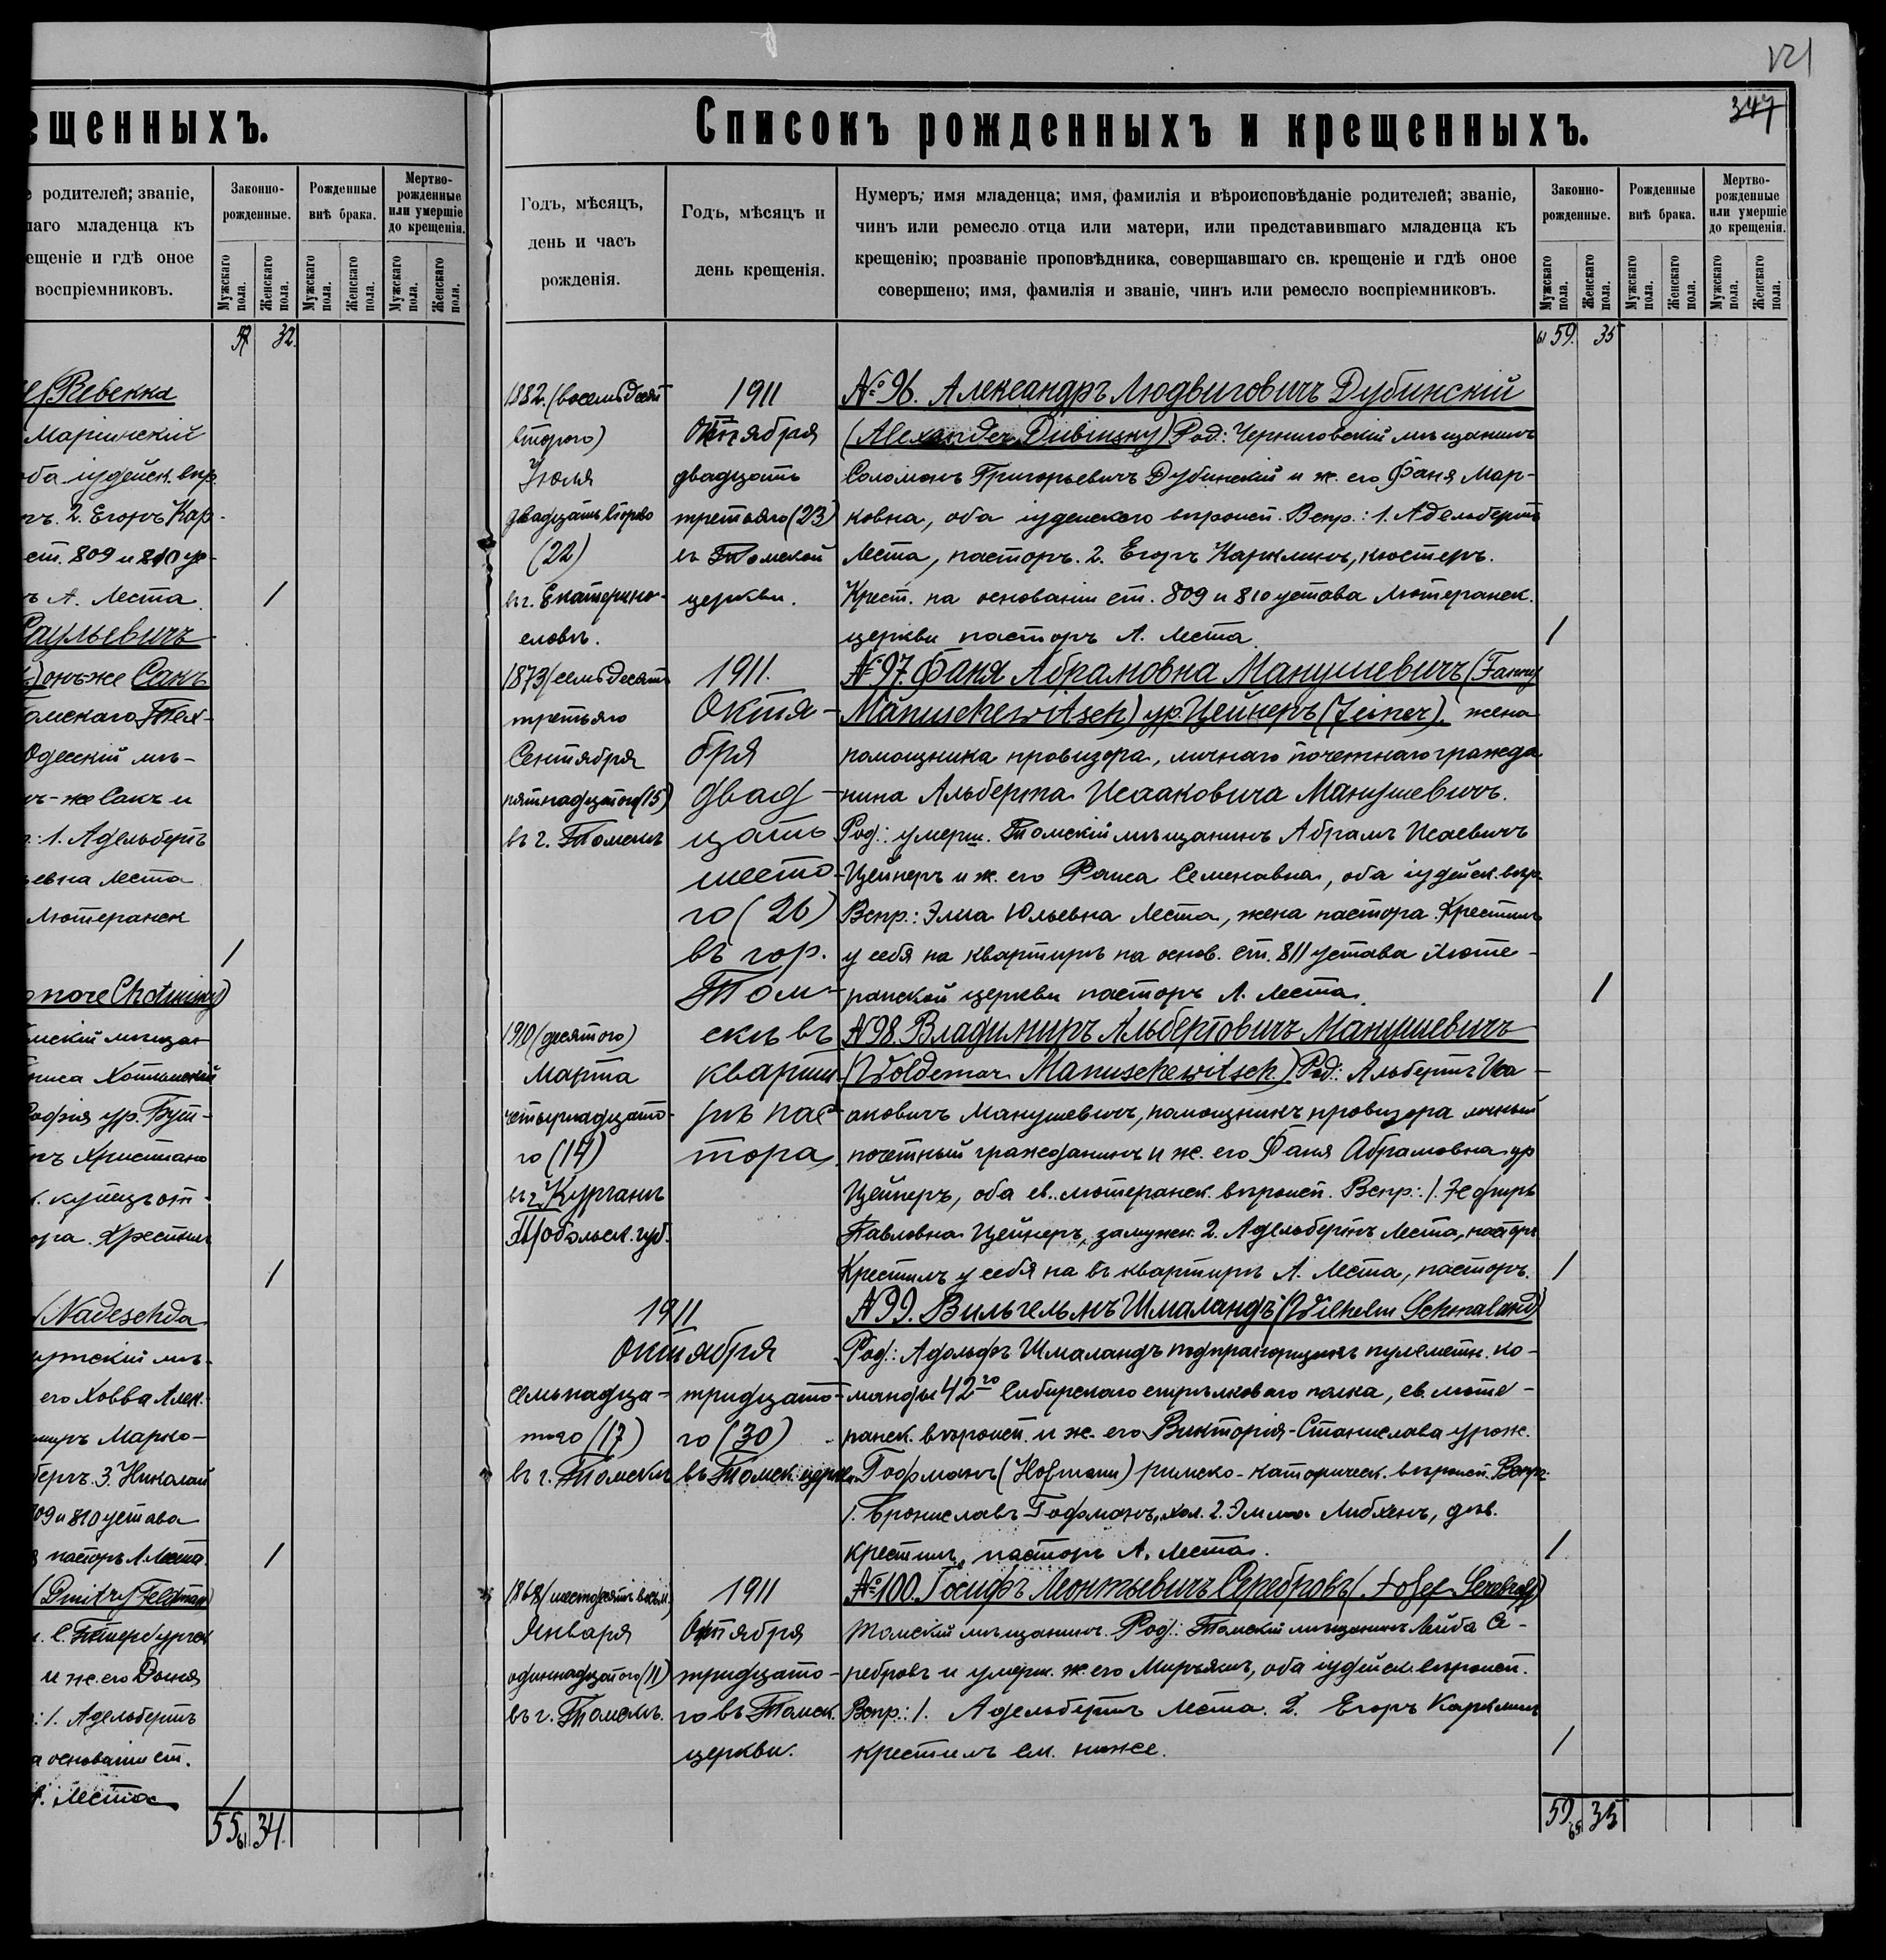 ещенныхъ.
е родителей; званіе,
шаго младенца къ
ещеніе и гдѣ оное
воспріемниковъ.
Законно-
рожденные.
Рожденные
внѣ брака.
Мертво-
рожденные
или умершіе
до крещенія.
Мужскаго
пола.
Женскаго
пола.
Мужскаго
пола.
Женскаго
пола.
Мужскаго
пола.
Женскаго
пола.
32.
(Ревекка
Маріинскій
оба іудейск. вѣр.
2. Егоръ Кар-
ст. 809 и 810 ус-
ъ А. Леста
/
Саульевичъ
онъ-же Сакъ
Томскаго Тех-
Одесскій мѣ-
ъ-же Сакъ и
: 1. Адельбертъ
ьевна Леста
Лютеранск
/
поге Chotimsky)
мскій мѣщан-
ниса Хотимскій
Софія ур. Буш-
ъ Христіано
купецъ от-
ора. Крестилъ
/
(Nadeschda
мѣ-
его Ховва Алек.
миръ Марко-
бергъ. 3. Николай
09 и 810 устава
пасторъ А. Леста.
/
(Dmitry Feldman)
С. Петербургск
и ж. его Доня
: 1. Адельбертъ
а основаніи ст.
А. Леста
/
55 61 34.
121
347
Списокъ рожденныхъ и крещенныхъ.
Годъ, мѣсяцъ,
день и часъ
рожденія.
Годъ, мѣсяцъ и
день крещенія.
Нумеръ; имя младенца; имя, фамилія и вѣроисповѣданіе родителей; званіе,
чинъ или ремесло отца или матери, или представившаго младенца къ
крещенію; прозваніе проповѣдника, совершавшаго св. крещеніе и гдѣ оное
совершено; имя, фамилія и званіе, чинъ или ремесло воспріемниковъ.
Законно-
рожденные.
Рожденные
внѣ брака.
Мертво-
рожденные
или умершіе
до крещенія.
Мужскаго
пола.
Женскаго
пола.
Мужскаго
пола.
Женскаго
пола.
Мужскаго
пола.
Женскаго
пола.
61 59. 35
1882. (восемьдесят
второго)
Іюля
двадцать второго
(22)
въ г. Екатерино-
славѣ.
1911
Октября
двадцать
третьяго (23)
въ Томской
церкви.
№ 96. Александръ Людвиговичъ Дубинскій
(Alexander Dubinsky) Род.: Черниговскій мѣщанинъ
Соломонъ Григорьевичъ Дубинскій и ж. его Фаня Мар-
ковна, оба іудейскаго вѣроисп. Вспр.: 1. Адельбертъ
Леста, пасторъ. 2. Егоръ Карклинъ, кюстеръ.
Крест. на основаніи ст. 809 и 810 устава Лютеранск.
церкви пасторъ А. Леста.
/
1873 (семьдесятъ
третьяго
Сентября
пятнадцатого (15)
въ г. Томскѣ
1911.
Октя-
бря
двад-
цать
шесто-
го (26)
въ гор.
Том-
скѣ въ
кварти-
рѣ пас-
тора
№ 97. Фаня Абрамовна Манушевичъ (Fanny
Manuschewitsch) ур. Цейнеръ (Zeiner). жена
помощника провизора, личнаго почетнаго гражда
нина Альберта Исааковича Манушевичъ.
Род.: умерш. Томскій мѣщанинъ Абрамъ Исаевичъ
Цейнеръ и ж. его Раиса Семеновна, оба іудейск. вѣр.
Вспр.: Элла Юльевна Леста, жена пастора. Крестилъ
у себя на квартирѣ на основ. ст. 811 устава Люте-
ранской церкви пасторъ А. Леста.
/
1910 (десятого)
Марта
четырнадцато-
го (14)
въ г. Курганѣ
Тобольск. губ.
№ 98. Владимиръ Альбертовичъ Манушевичъ
(Woldemar Manuschewitsch.) Род.: Альбертъ Иса-
аковичъ Манушевичъ, помощникъ провизора личный
почетный гражданинъ и ж. его Фаня Абрамовна ур
Цейнеръ, оба ев. лютеранск. вѣроисп. Вспр.: 1.
Павловна Цейнеръ, замужн. 2. Адельбертъ Леста, пасторъ
Крестилъ у себя на въ квартирѣ А. Леста, пасторъ.
/
1911
Октября
семьнадца-
таго (17)
въ г. Томскѣ
тридцато-
го (30)
въ Томск. церкви
№ 99. Вильгельмъ Шмаландъ (Wilhelm Schmaland)
Род.: Адольфъ Шмаландъ подпрапорщикъ пулеметн. ко-
манды 42го Сибирскаго стрѣлковаго полка, ев. люте-
ранск. вѣроисп. и ж. его Викторія-Станислава урож.
Гофманъ (Hofmann) римско-католическ. вѣроисп. Вспр.:
1. Брониславъ Гофманъ, хол. 2. Эмма Либхенъ, дѣв.
Крестилъ пасторъ А. Леста.
/
1868 (шестьдесятъ восьм.)
Января
одиннадцатого (11)
въ г. Томскѣ.
1911
Октября
тридцато-
го въ Томск.
церкви.
№ 100. Іосифъ Леонтьевичъ Серебровъ (Josef Serebroff)
Томскій мѣщанинъ. Род.: Томскій мѣщанинъ Лейба Се-
ребровъ и умерш. ж. его Мирьямъ, оба іудейск. вѣроисп.
Вспр.: 1. Адельбертъ Леста. 2. Егоръ Карклинъ
Крестилъ см. ниже.
/
59. 65 35